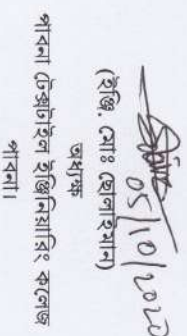 05/10/2020
(ইঞ্জি. মোঃ ছোলাইমান)
অধ্যক্ষ
পাবনা টেক্সটাইল ইঞ্জিনিয়ারিং কলেজ
পাবনা।